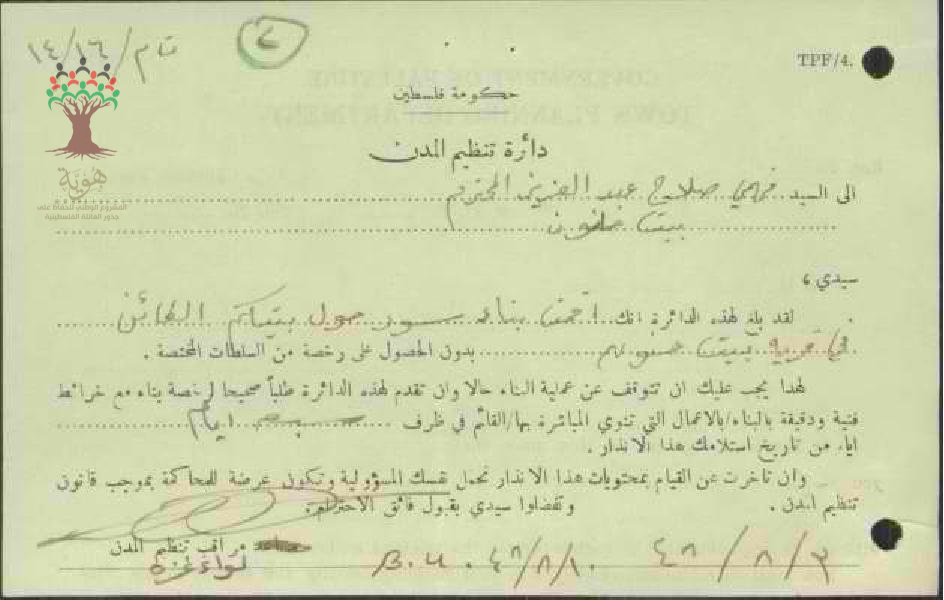 تام/١٤/١٦
٧
TPF/4.
هوية
المشروع الوطني للحفاظ على
جذور العائلة الفلسطينية
حكومة فلسطين
دائرة تنظيم المدن
الى السيد فهمي صلاح عبد العزيز المحترم
بيت حانون
سيدي ،
لقد بلغ لهذه الدائرة انك اقمت بناء سور حول بيتكم الكائن
في قرية بيت حنون بدون الحصول على رخصة من السلطات المختصة .
لهذا يجب عليك ان تتوقف عن عملية البناء حالا وان تقدم لهذه الدائرة طلباً صحيحا لرخصة بناء مع خرائط
فنية ودقيقة بالبناء/بالاعمال التي تنوي المباشرة بها/القائم في ظرف سبعة ايام
اياء من تاريخ استلامك هذا الانذار .
وان تاخرت عن القيام بمحتويات هذا الانذار تحمل نفسك المسؤولية وتكون عرضة للمحاكمة بموجب قانون
تنظيم المدن . وتفضلوا سيدي بقبول فائق الاحترام ،
مراقب تنظيم المدن
لواء غزة
٤٨/٨/١٠
٤٨/٨/٣